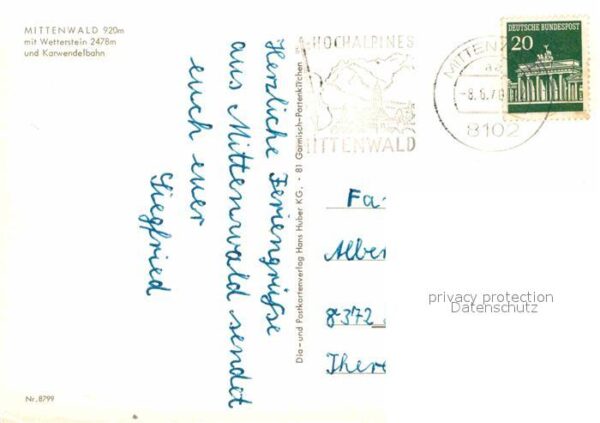 MITTENWALD 920m
mit Wetterstein 2478m
und Karwendelbahn
Herzliche Feriengrüße
aus Mittenwald sendet
euch euer
Siegfried
Nr. 8799
Dia- und Postkartenverlag Hans Huber KG. · 81 Garmisch-Partenkirchen
HOCHALPINES
MITTENWALD
MITTEN
-8.6.7
8102
20
DEUTSCHE BUNDESPOST
Fa
Alber
8372
There
privacy protection
Datenschutz